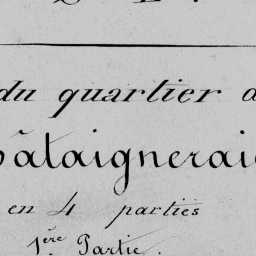 du quartier d
hâtaigneraie
en 4 parties
1ère Partie.